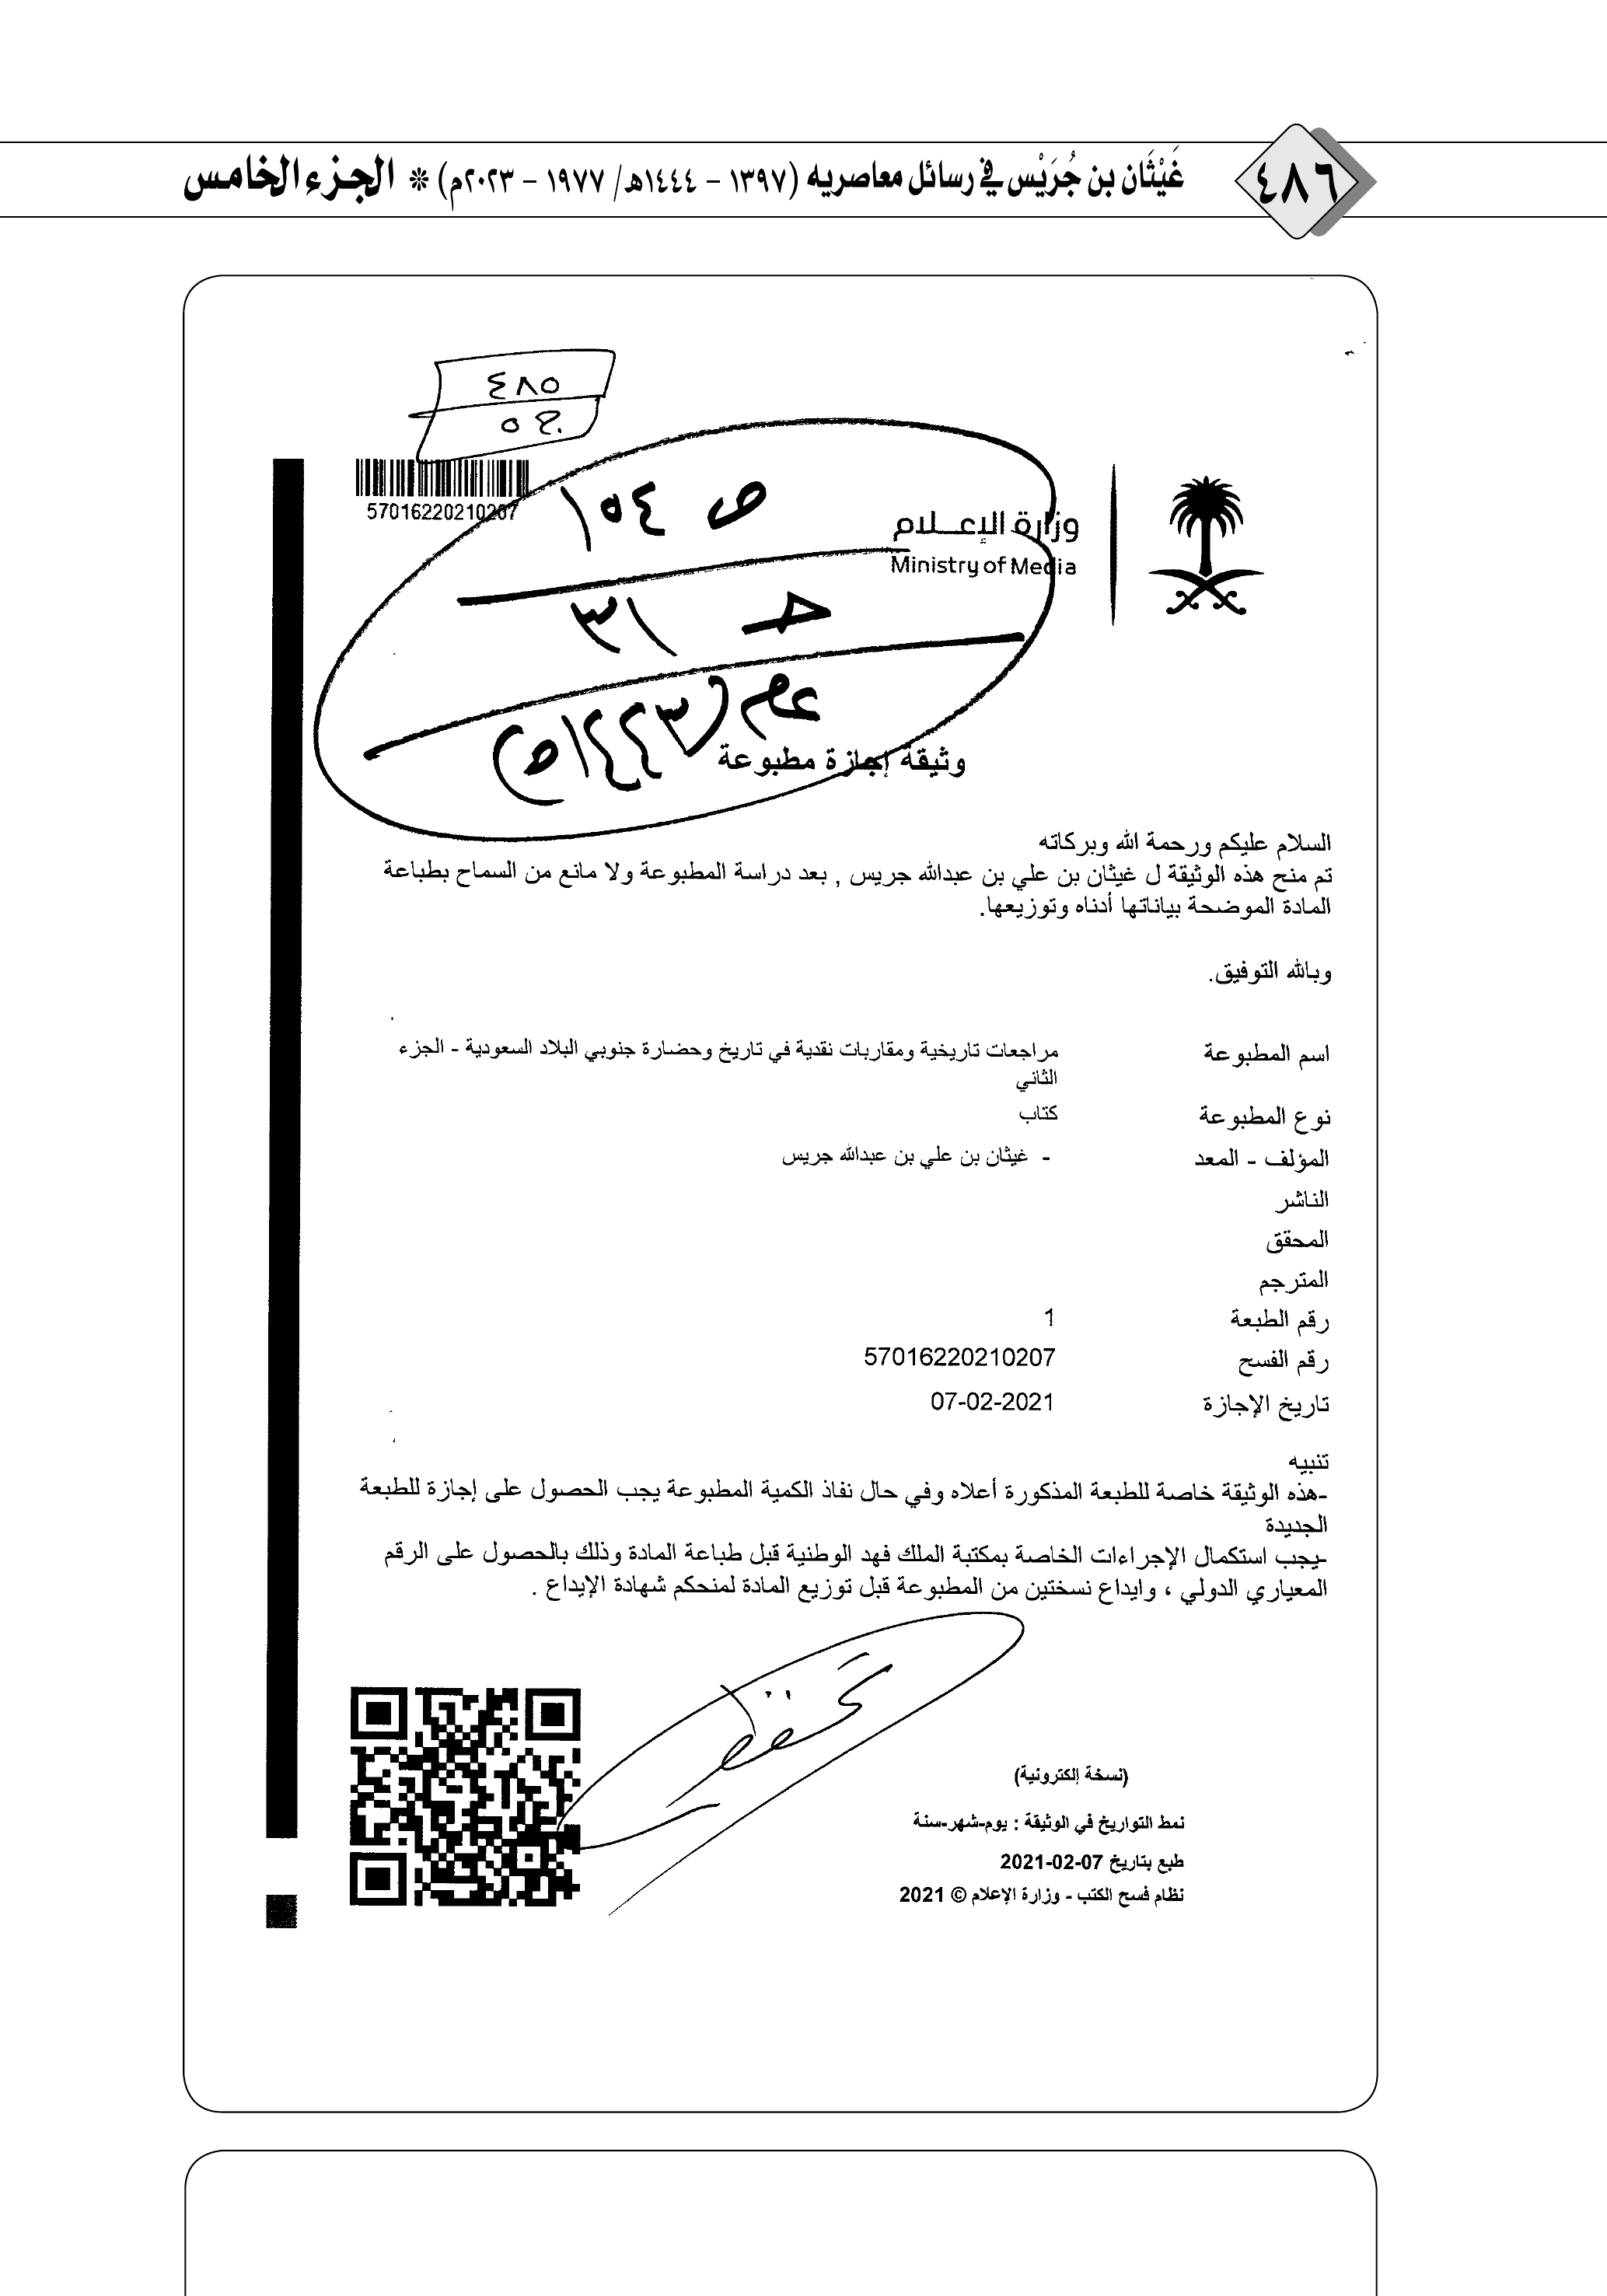 ٤٨٦
غَيْثَان بن جُرَيْس في رسائل معاصريه (١٣٩٧ – ١٤٤٤هـ/ ١٩٧٧ – ٢٠٢٣م) * الجزء الخامس
٤٨٥
ج ٥
57016220210207
ص ١٥٤
وزارة الإعـــلام
Ministry of Media
ج ٣١
وثيقة إجازة مطبوعة
السلام عليكم ورحمة الله وبركاته
تم منح هذه الوثيقة ل غيثان بن علي بن عبدالله جريس , بعد دراسة المطبوعة ولا مانع من السماح بطباعة
المادة الموضحة بياناتها أدناه وتوزيعها.
وبالله التوفيق.
اسم المطبوعة مراجعات تاريخية ومقاربات نقدية في تاريخ وحضارة جنوبي البلاد السعودية - الجزء
الثاني
نوع المطبوعة كتاب
المؤلف - المعد - غيثان بن علي بن عبدالله جريس
الناشر
المحقق
المترجم
رقم الطبعة 1
رقم الفسح 57016220210207
تاريخ الإجازة 07-02-2021
تنبيه
-هذه الوثيقة خاصة للطبعة المذكورة أعلاه وفي حال نفاذ الكمية المطبوعة يجب الحصول على إجازة للطبعة
الجديدة
-يجب استكمال الإجراءات الخاصة بمكتبة الملك فهد الوطنية قبل طباعة المادة وذلك بالحصول على الرقم
المعياري الدولي ، وايداع نسختين من المطبوعة قبل توزيع المادة لمنحكم شهادة الإيداع .
(نسخة إلكترونية)
نمط التواريخ في الوثيقة : يوم-شهر-سنة
طبع بتاريخ 07-02-2021
نظام فسح الكتب - وزارة الإعلام © 2021